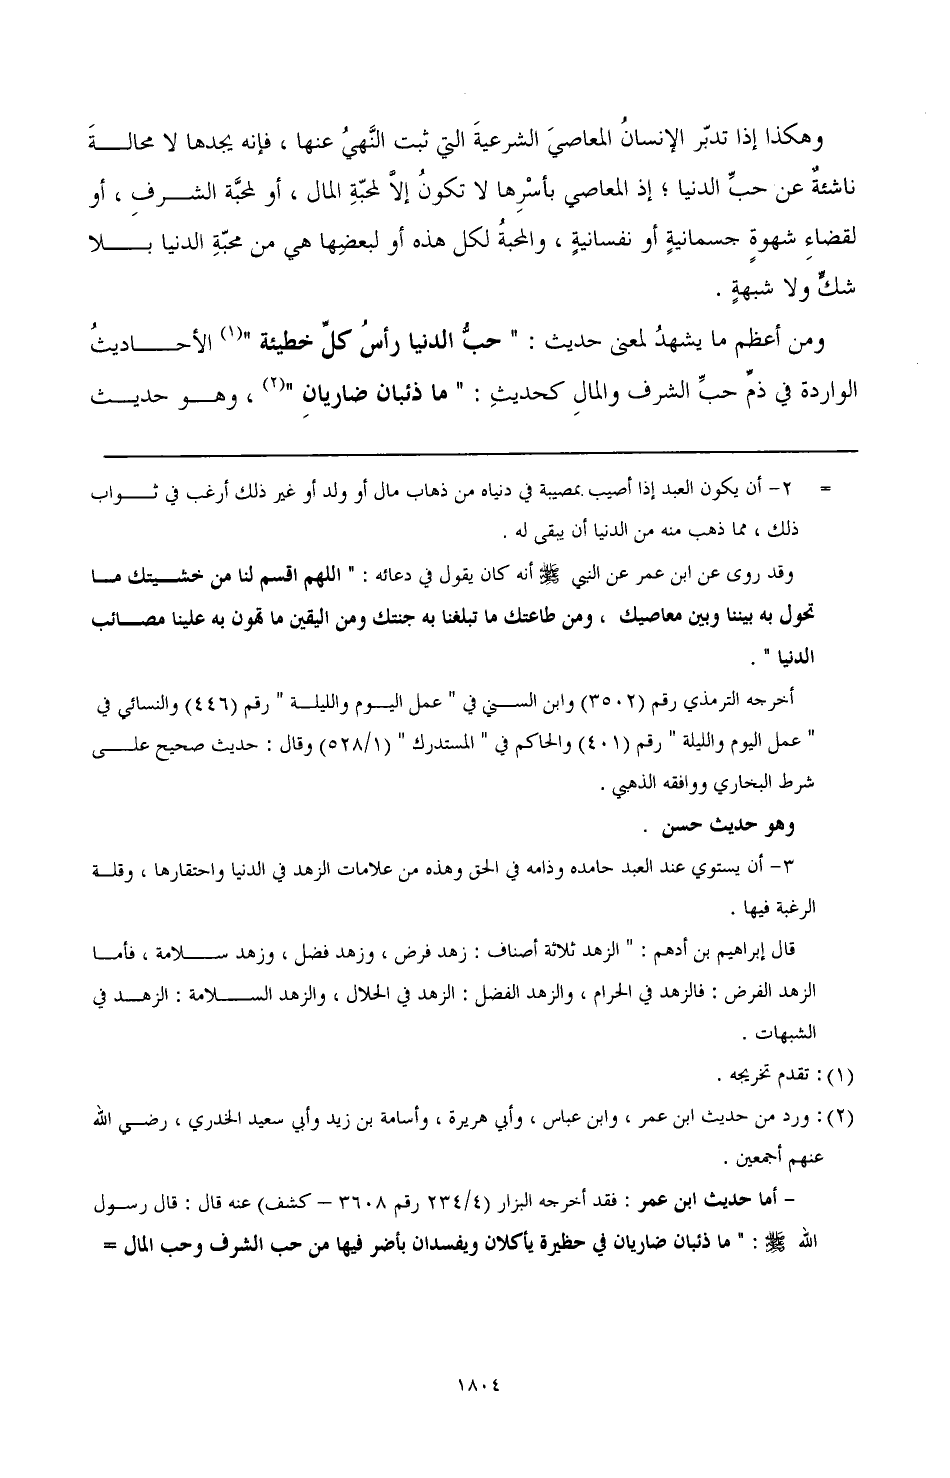 وهكذا إذا تدبّر الإنسانُ المعاصيَ الشرعيةَ التي ثبت النَّهيُ عنها ، فإنه يجدها لا محالـــةَ
ناشئةٌ عن حبِّ الدنيا ؛ إذ المعاصي بأسْرِها لا تكونُ إلاَّ لمحبّةِ المال ، أو لمحبَّة الشـــرفِ ، أو
لقضاءِ شهوةٍ جسمانيةٍ أو نفسانيةٍ ، والمحبةُ لكل هذه أو لبعضِها هي من محبّةِ الدنيا بـــلا
شكٍّ ولا شبهةٍ .
ومن أعظم ما يشهدُ لمعنى حديث : " حبُّ الدنيا رأسُ كلِّ خطيئة "(١) الأحـــاديثُ
الواردة في ذمِّ حبِّ الشرف والمالِ كحديثِ : " ما ذئبان ضاريانِ "(٢) ، وهـــو حديـــث
= ٢- أن يكون العبد إذا أصيب بمصيبة في دنياه من ذهاب مال أو ولد أو غير ذلك أرغب في ثـــواب
ذلك ، مما ذهب منه من الدنيا أن يبقى له .
وقد روى عن ابن عمر عن النبي ﷺ أنه كان يقول في دعائه : " اللهم اقسم لنا من خشـــيتك مـــا
تحول به بيننا وبين معاصيك ، ومن طاعتك ما تبلغنا به جنتك ومن اليقين ما تهون به علينا مصـــائب
الدنيا " .
أخرجه الترمذي رقم (٣٥٠٢) وابن الســـني في " عمل اليـــوم والليلـــة " رقم (٤٤٦) والنسائي في
" عمل اليوم والليلة " رقم (٤٠١) والحاكم في " المستدرك " (٥٢٨/١) وقال : حديث صحيح علـــى
شرط البخاري ووافقه الذهبي .
وهو حديث حسن .
٣- أن يستوي عند العبد حامده وذامه في الحق وهذه من علامات الزهد في الدنيا واحتقارها ، وقلـــة
الرغبة فيها .
قال إبراهيم بن أدهم : " الزهد ثلاثة أصناف : زهد فرض ، وزهد فضل ، وزهد ســـلامة ، فأمـــا
الزهد الفرض : فالزهد في الحرام ، والزهد الفضل : الزهد في الحلال ، والزهد الســـلامة : الزهـــد في
الشبهات .
(١) : تقدم تخريجه .
(٢) : ورد من حديث ابن عمر ، وابن عباس ، وأبي هريرة ، وأسامة بن زيد وأبي سعيد الخدري ، رضـــي الله
عنهم أجمعين .
– أما حديث ابن عمر : فقد أخرجه البزار (٢٣٤/٤ رقم ٣٦٠٨ – كشف) عنه قال : قال رســـول
الله ﷺ : " ما ذئبان ضاريان في حظيرة يأكلان ويفسدان بأضر فيها من حب الشرف وحب المال =
١٨٠٤